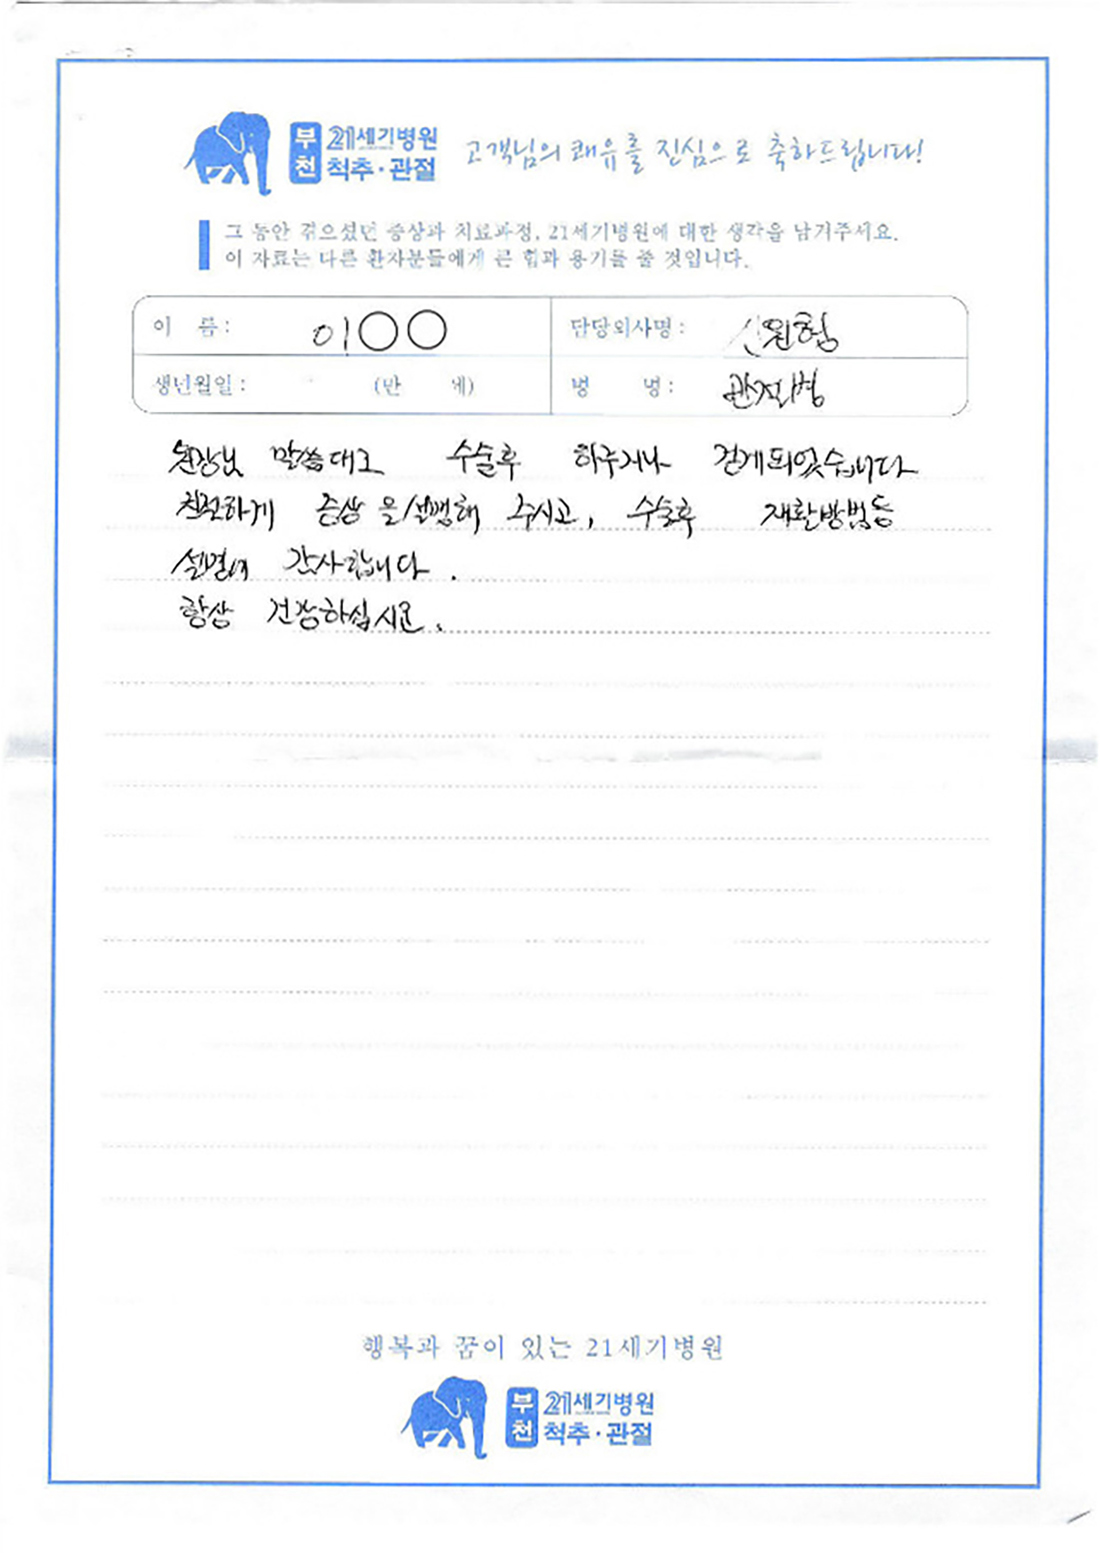 부천 21세기병원 척추·관절 고객님의 쾌유를 진심으로 축하드립니다!
그 동안 겪으셨던 증상과 치료과정, 21세기병원에 대한 생각을 남겨주세요.
이 자료는 다른 환자분들에게 큰 힘과 용기를 줄 것입니다.
이 름 : 이○○ 담당의사명 : 신원협
생년월일 : (만 세) 병 명 : 관절병
원장님 말씀대로 수술후 하루지나 걷게되었습니다
친절하게 증상을 설명해 주시고, 수술후 재활방법등
감사합니다.
항상 건강하십시요.
행복과 꿈이 있는 21세기병원
부천 21세기병원 척추·관절